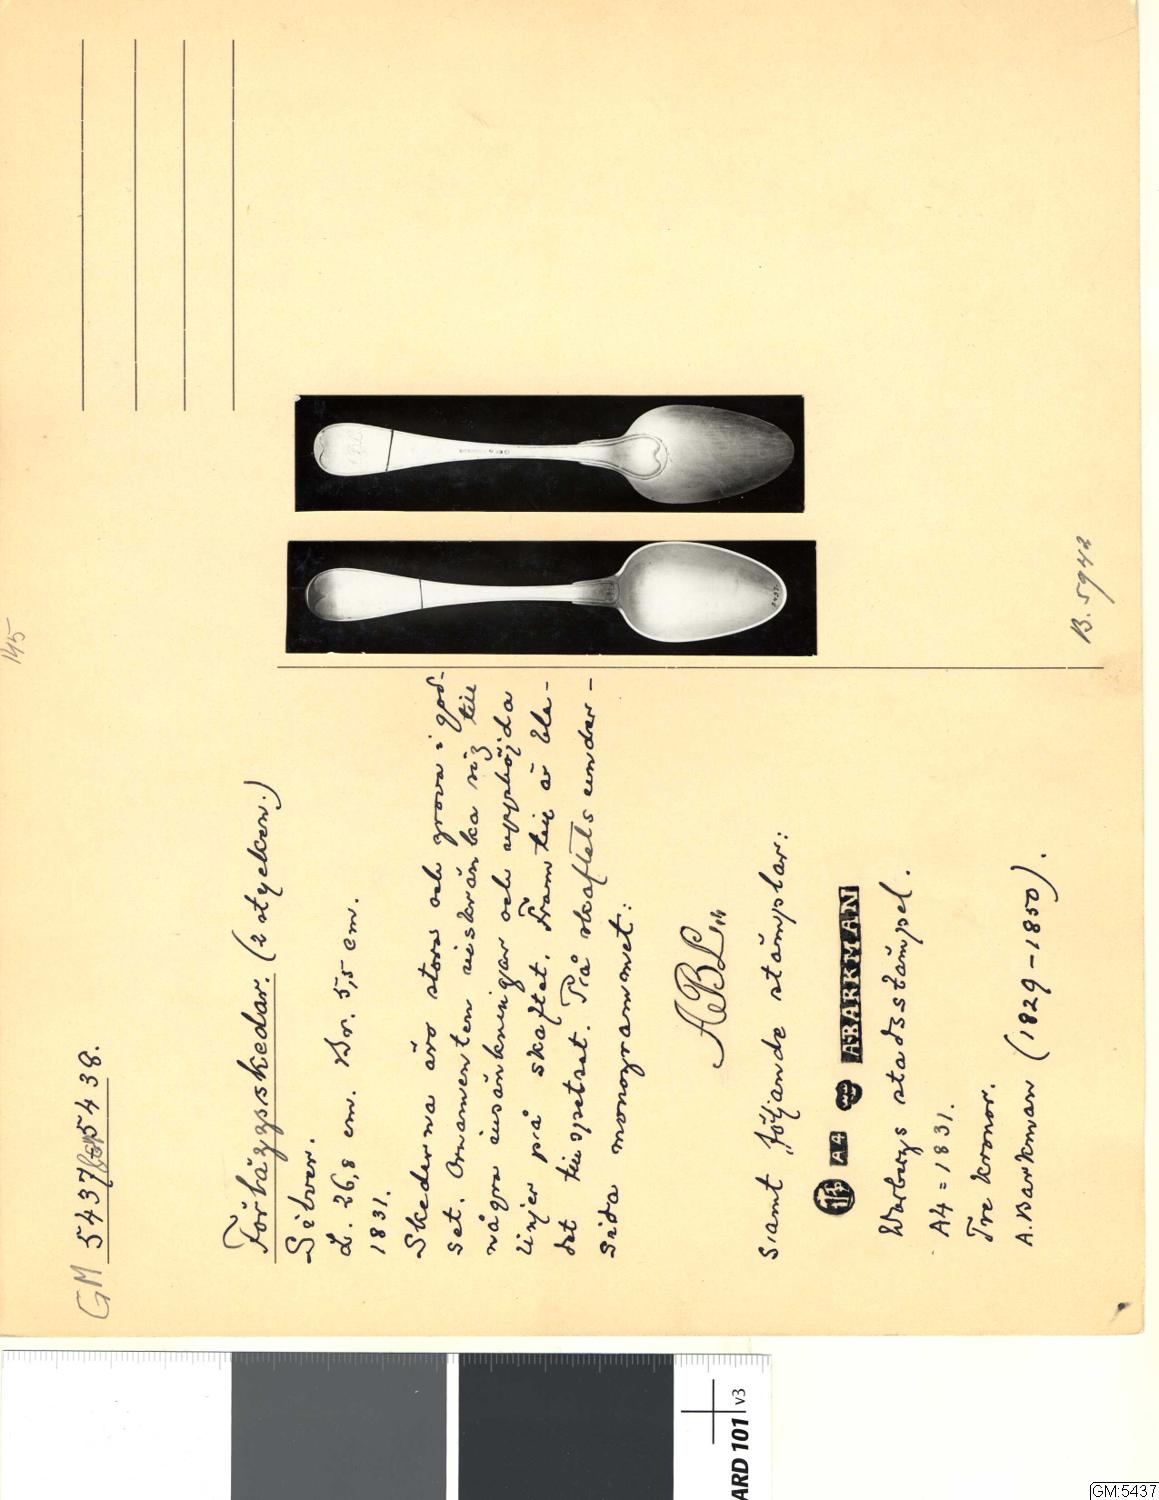 145
GM 5437 5438.
Förläggsskedar. (2 stycken.)
Silver.
L. 26,8 cm. Dr. 5,5 cm.
1831.
Skedarna äro stora och grova i god-
set. Ornamenten inskränka sig till
några insänkningar och upphöjda
linjer på skaftet. Framtill är bla-
det tillspetsat. På skaftets under-
sida monogrammet:
ABL
samt följande stämplar:
A4 ABARKMAN
Warbergs stadsstämpel.
A4 = 1831.
Tre Kronor.
A. Barkman (1829-1850).
B. 5942
ARD 101 v3
GM:5437